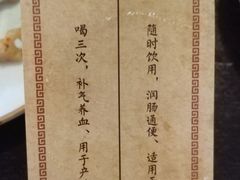 随时饮用，润肠通便、适用于
喝三次，补气养血、用于产